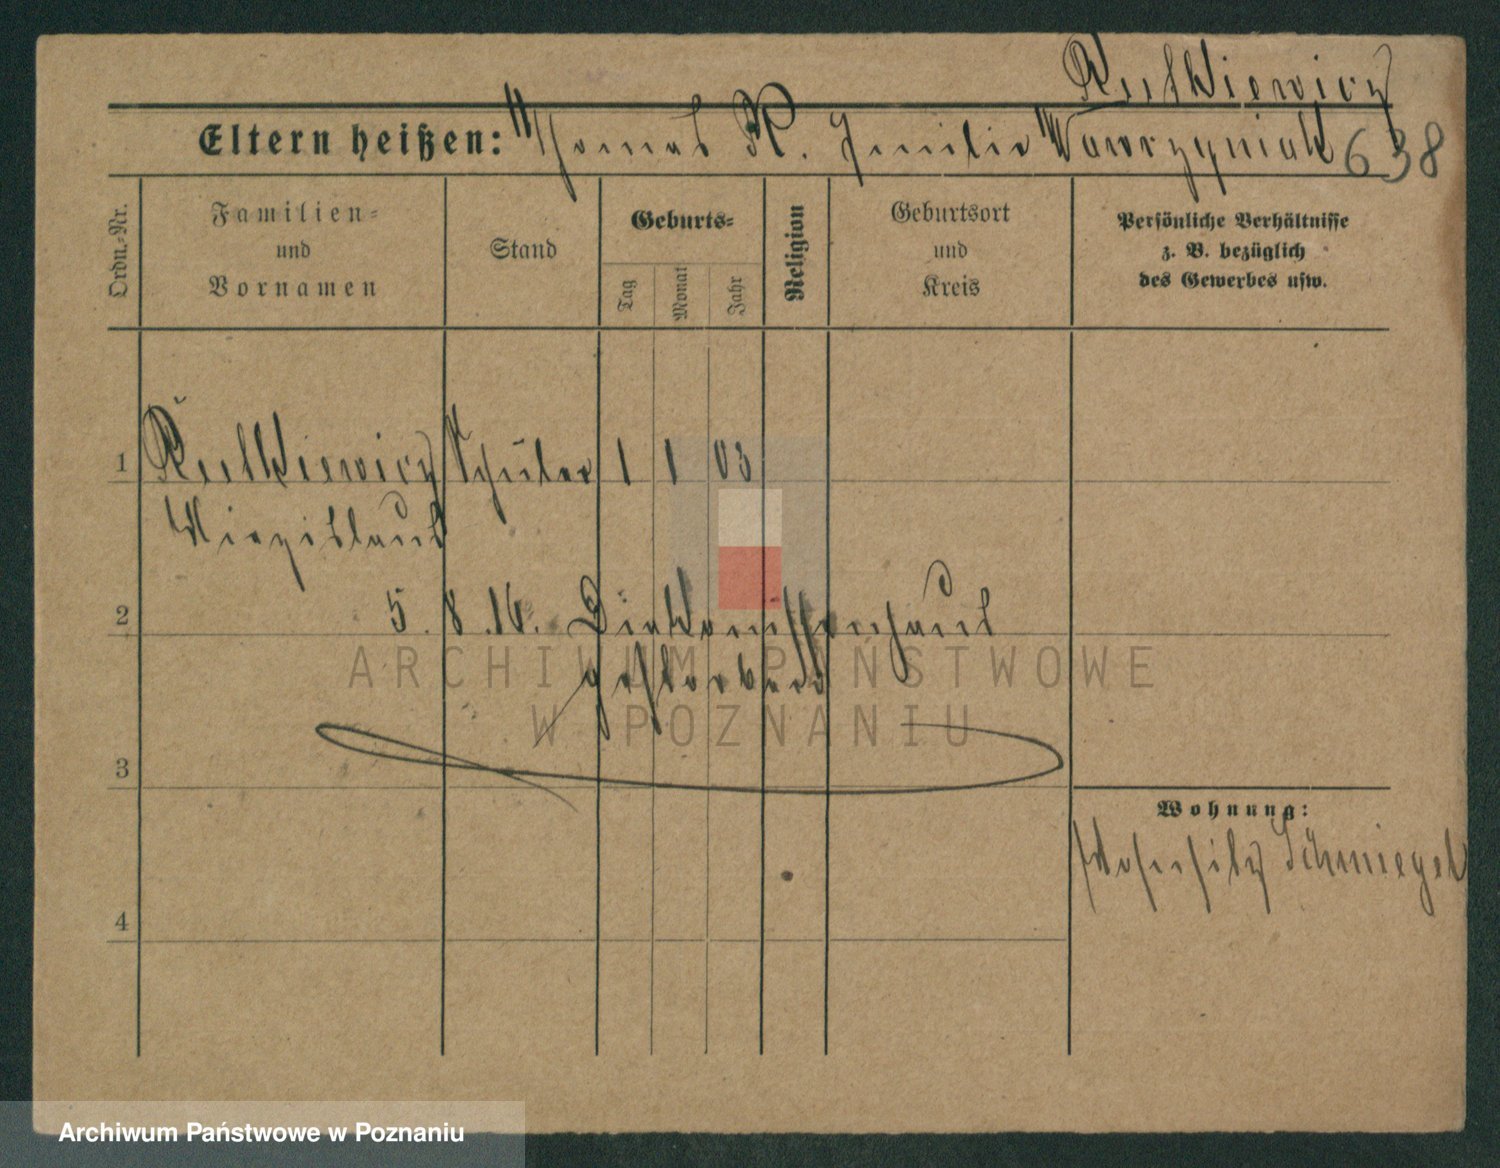 Rutkiewicz
Eltern heißen: Thomas R. Emilie Wawrzyniak 638
Ordn.-Nr.
Familien-
und
Vornamen
Stand
Geburts-
Tag
Monat
Jahr
Religion
Geburtsort
und
Kreis
Persönliche Verhältnisse
z. B. bezüglich
des Gewerbes usw.
1 Rutkiewicz Schüler 1 1 03
Miezislaus
2 5. 8. 16. Diakonissenhaus
gestorben
ARCHIWUM PAŃSTWOWE
W POZNANIU
3
Wohnung:
Schmiegel
4
Archiwum Państwowe w Poznaniu